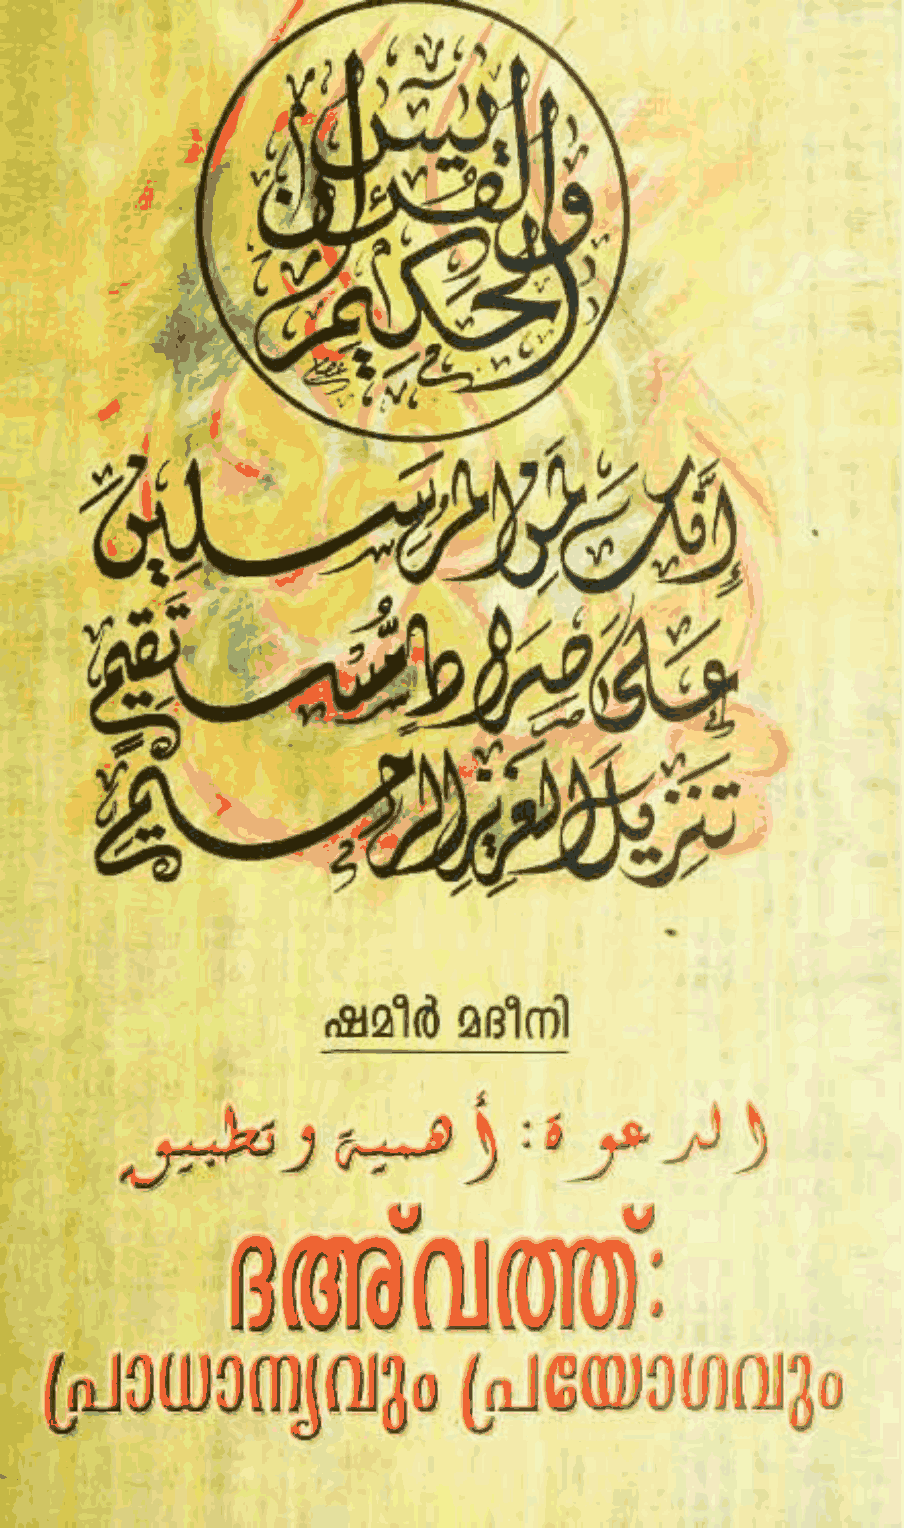 يسٓ
والقرآن
الحكيم
إِنَّكَ لَمِنَ الْمُرْسَلِينَ
عَلَىٰ صِرَاطٍ مُّسْتَقِيمٍ
تَنزِيلَ الْعَزِيزِ الرَّحِيمِ
ഷമീർ മദീനി
الدعوة: أهمية وتطبيق
ദഅ്‌വത്ത്:
പ്രാധാന്യവും പ്രയോഗവും